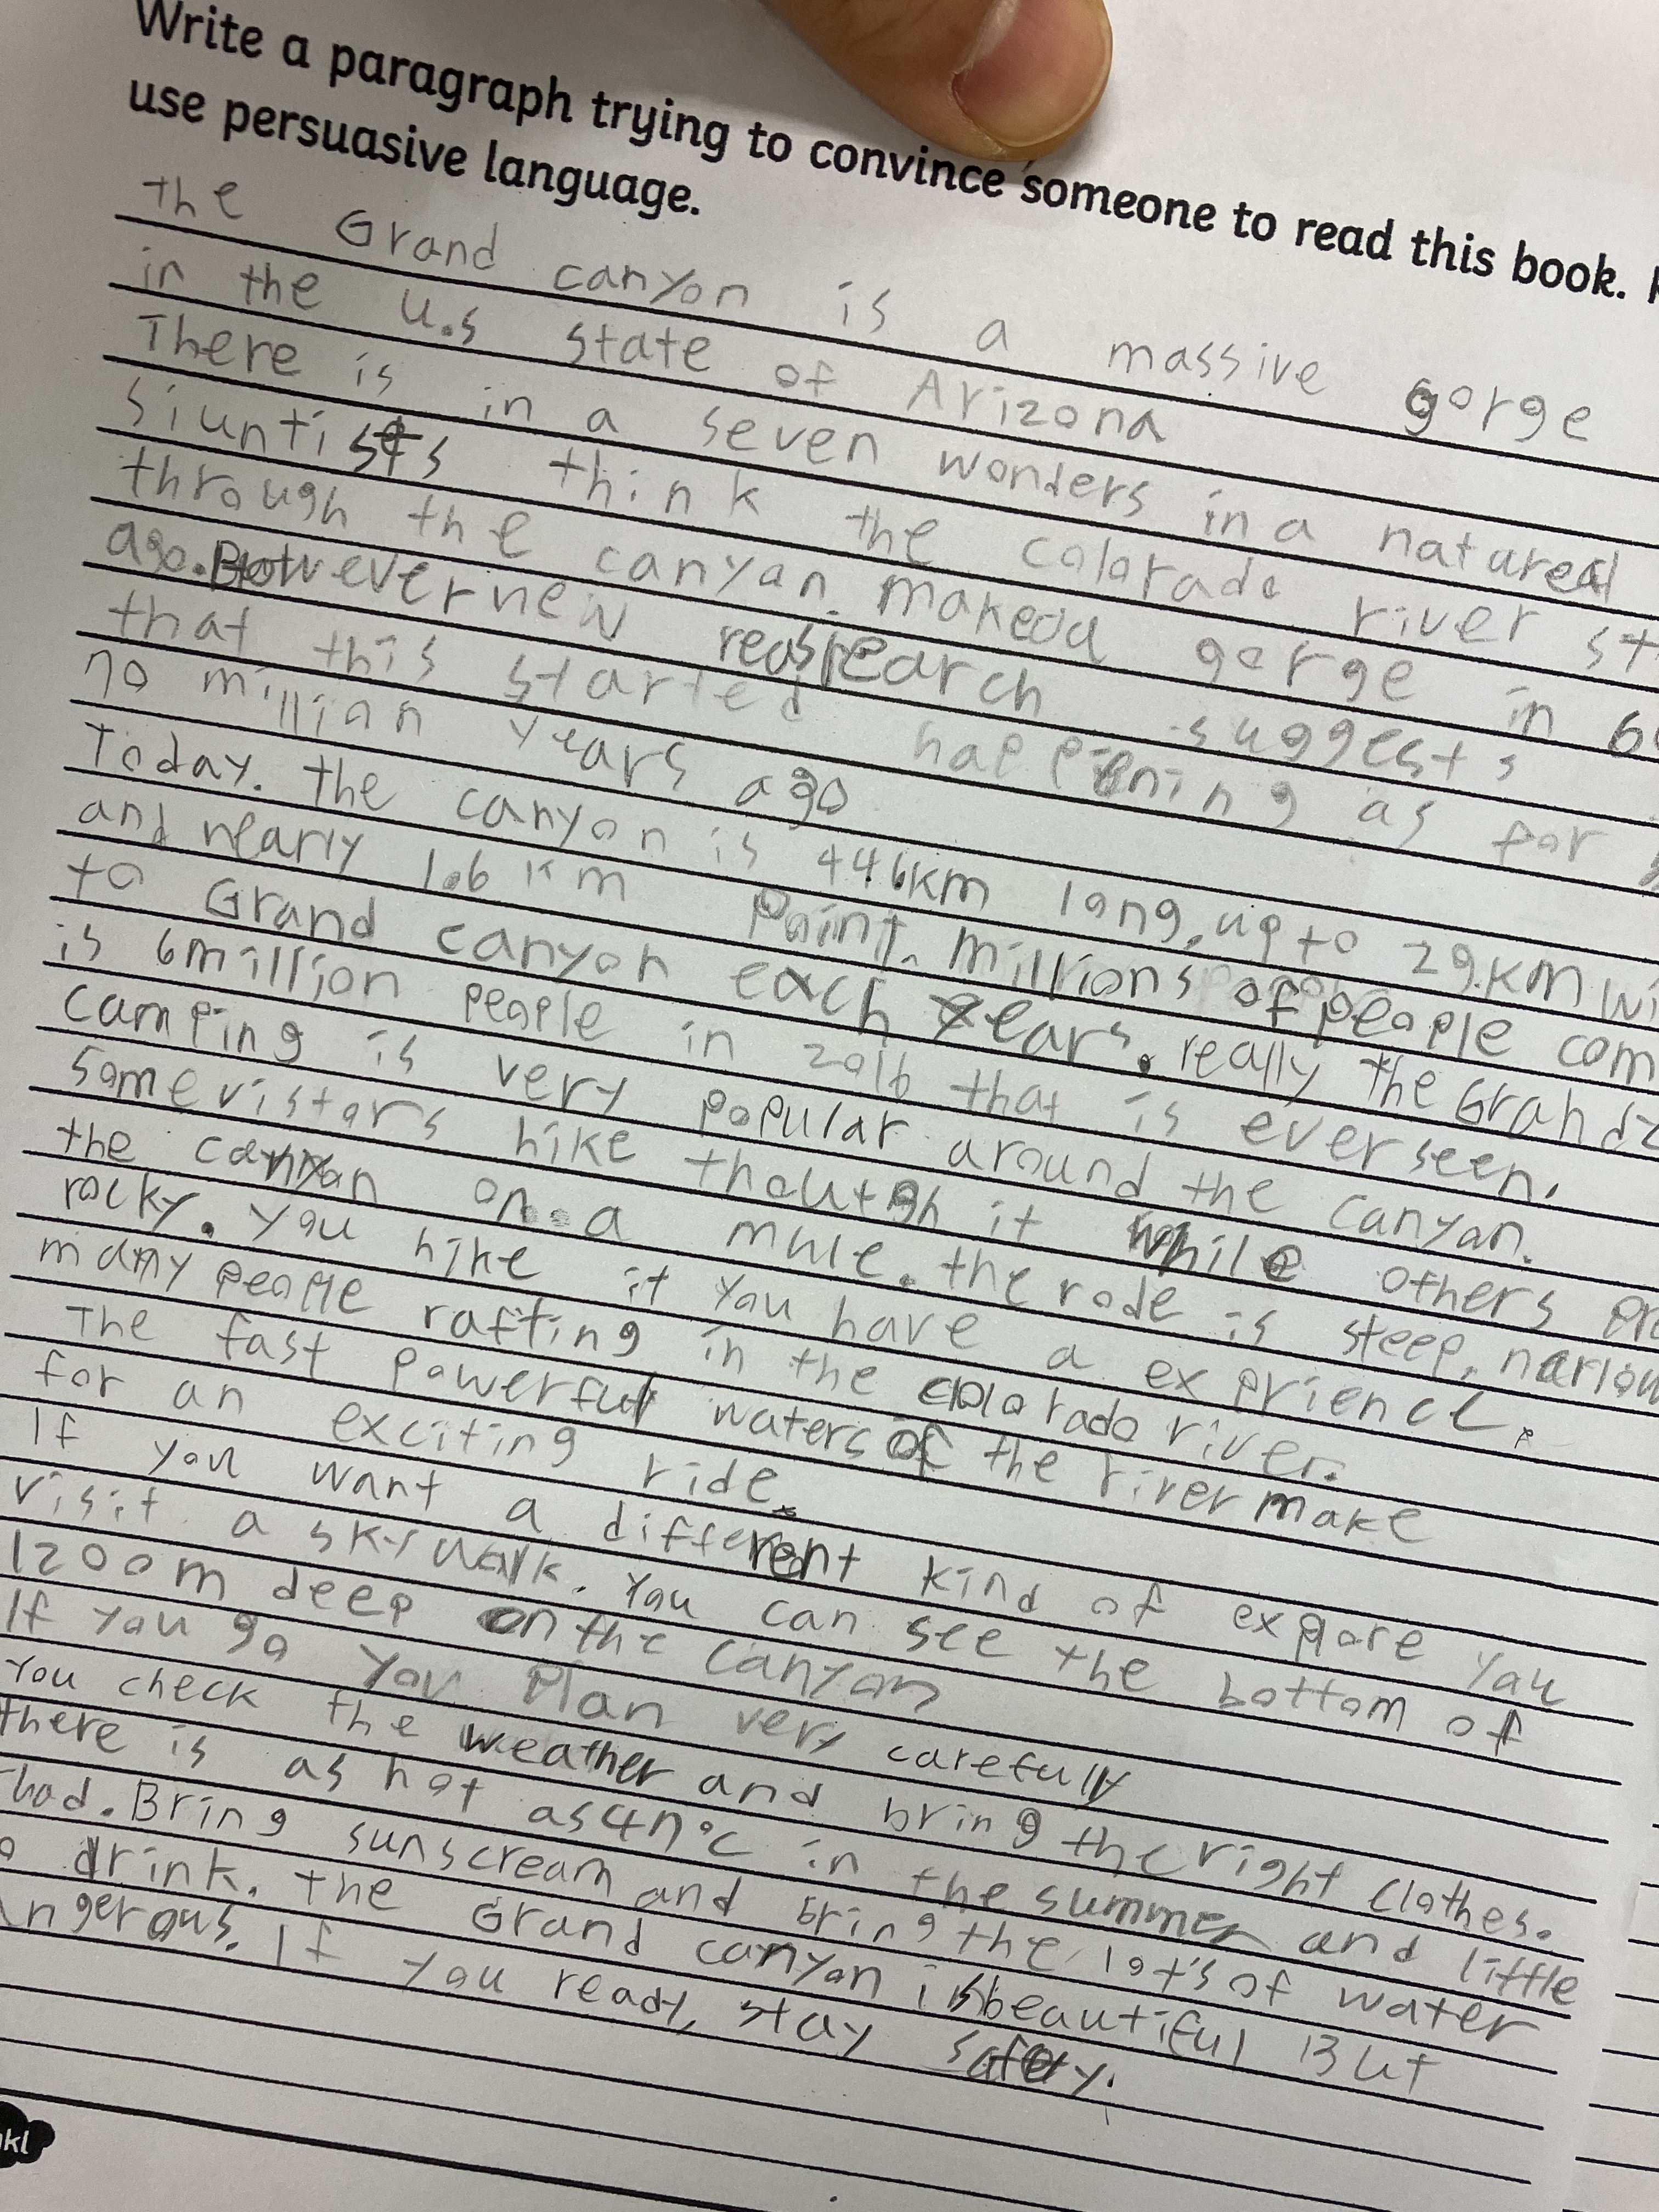 Write a paragraph trying to convince someone to read this book.
use persuasive language.
the Grand canyon is a massive gorge
in the U.S state of Arizona
There is in a seven wonders in a natural
siuntists think the colorado river
through the canyan. makeda gorge in
ago. However new research suggests
that this started happening as far
70 million years ago
Today. the canyon is 446km long, up to 29.km
and nearly 1.6 km Point. millions of people
to Grand canyon each years. really the Grand
is 6million people in 2016 that is ever seen.
camping is very popular around the canyan.
Some vistors hike thoutgh it while others
the canyon on a mule. the rode is steep, narlow
rocky. you hike it you have a exprience.
many people rafting in the colorado river.
The fast powerful waters of the river make
for an exciting ride.
If you want a different kind of expore you
visit a skywalk. You can see the bottom of
1200m deep on the canyon
If you go you plan very carefully
You check the weather and bring the right clothes.
there is as hot as 47°c in the summer and little
bad. Bring sunscream and bring the lots of water
drink. the Grand canyon is beautiful But
If you ready, stay safty.